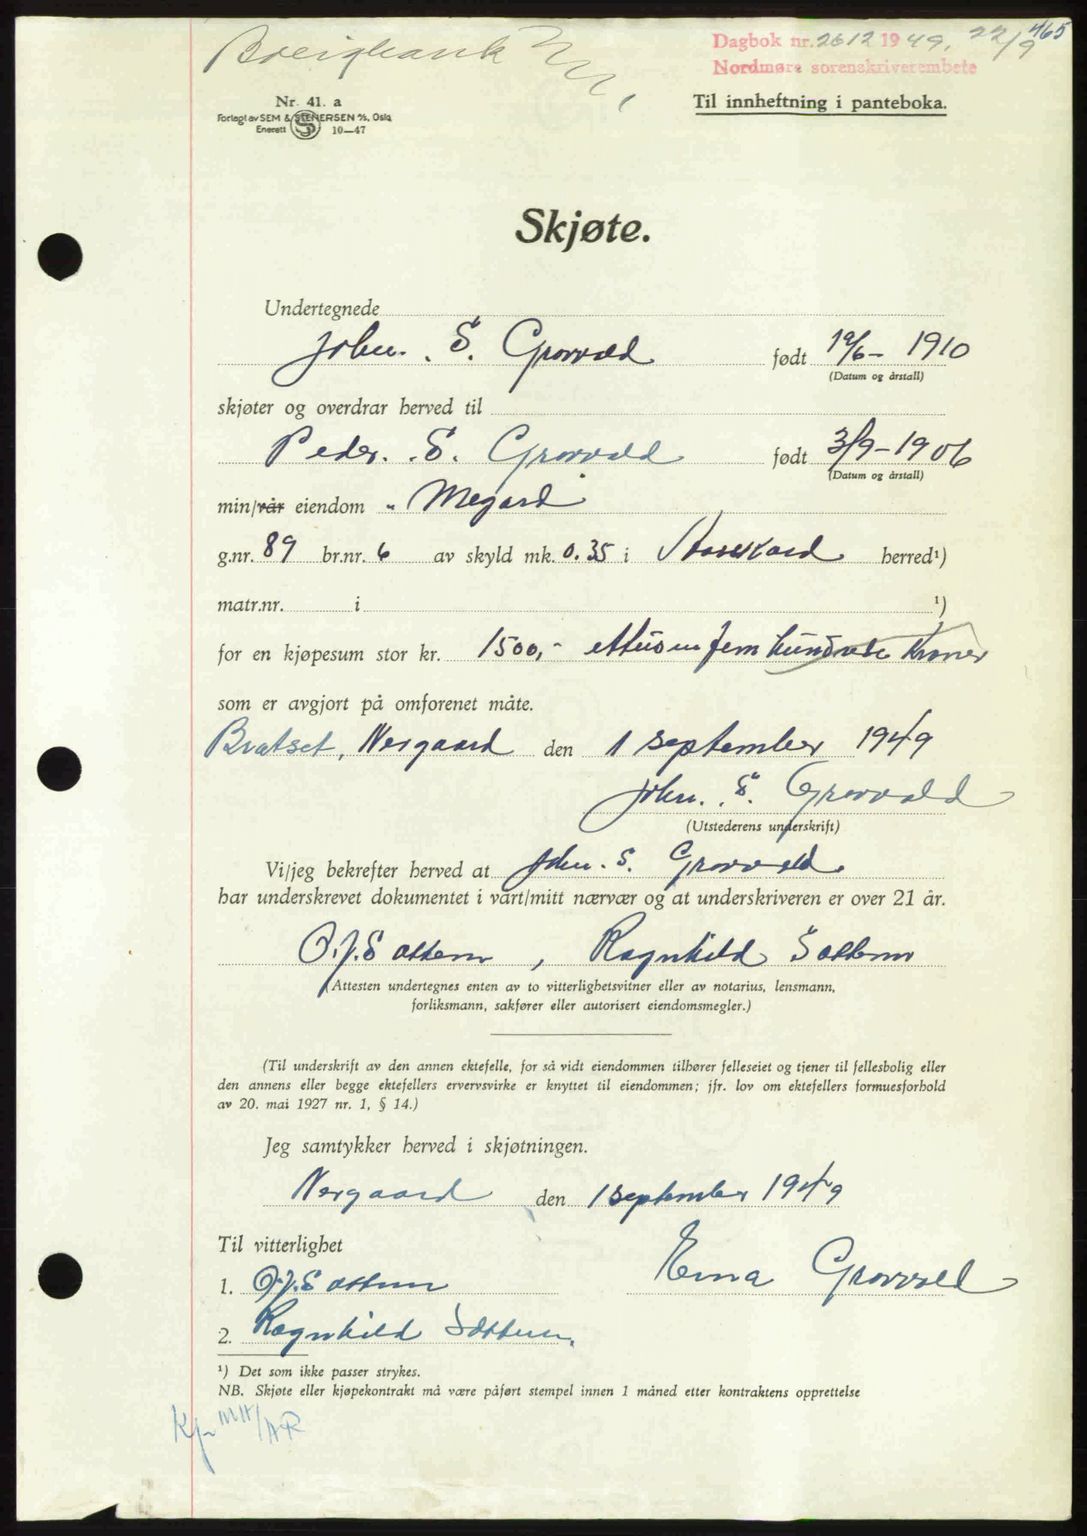 465
Dagbok nr. 2612 1949. 22/9
Nordmøre sorenskriverembete
Nr. 41. a
Forlagt av SEM & STENERSEN A/S, Oslo
Enerett SS 10—47
Til innheftning i panteboka.
Skjøte.
Undertegnede
John. S. Grovold født 19/6- 1910
(Datum og årstall)
skjøter og overdrar herved til
Peder. S. Grovold født 3/9-1906
(Datum og årstall)
min/vår eiendom " Megard
g.nr. 89 br.nr. 6 av skyld mk. 0.35 i herred¹)
matr.nr. i ¹)
for en kjøpesum stor kr. 1500,- ettusenfemhundrede Kroner
som er avgjort på omforenet måte.
Bratset, Nergaard den 1 september 1949
John. S. Grovold
(Utstederens underskrift)
Vi/jeg bekrefter herved at John. S. Grovold
har underskrevet dokumentet i vårt/mitt nærvær og at underskriveren er over 21 år.
O.J. Sættem, Ragnhild Sættem
(Attesten undertegnes enten av to vitterlighetsvitner eller av notarius, lensmann,
forliksmann, sakfører eller autorisert eiendomsmegler.)
(Til underskrift av den annen ektefelle, for så vidt eiendommen tilhører felleseiet og tjener til fellesbolig eller
den annens eller begge ektefellers ervervsvirke er knyttet til eiendommen; jfr. lov om ektefellers formuesforhold
av 20. mai 1927 nr. 1, § 14.)
Jeg samtykker herved i skjøtningen.
Nergaard den 1 september 1949
Til vitterlighet
Erna Grovold
1. O.J. Sættem
2. Ragnhild Sættem
¹) Det som ikke passer strykes.
NB. Skjøte eller kjøpekontrakt må være påført stempel innen 1 måned etter kontraktens opprettelse
Kp. MH/AR